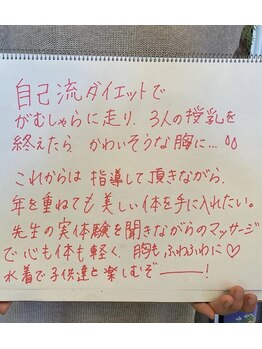 自己流ダイエットで
がむしゃらに走り、3人の授乳を
終えたら かわいそうな胸に…
これからは 指導して頂きながら、
年を重ねても美しい体を手に入れたい。
先生の実体験を聞きながらのマッサージ
で心も体も軽く、胸もふわふわに♡
水着で子供達と楽しむぞ――!